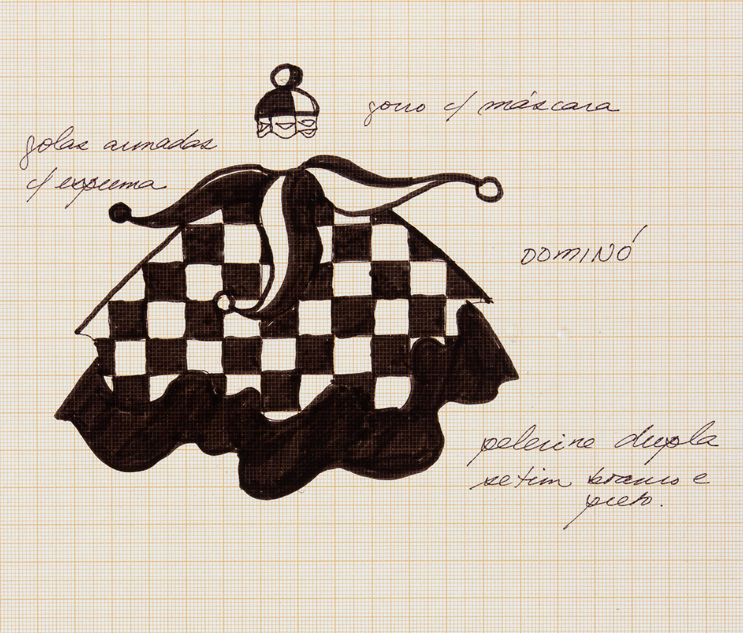 gorro c/ máscara
golas armadas
c/ espuma
DOMINÓ
pelerine dupla
setim branco e
preto.